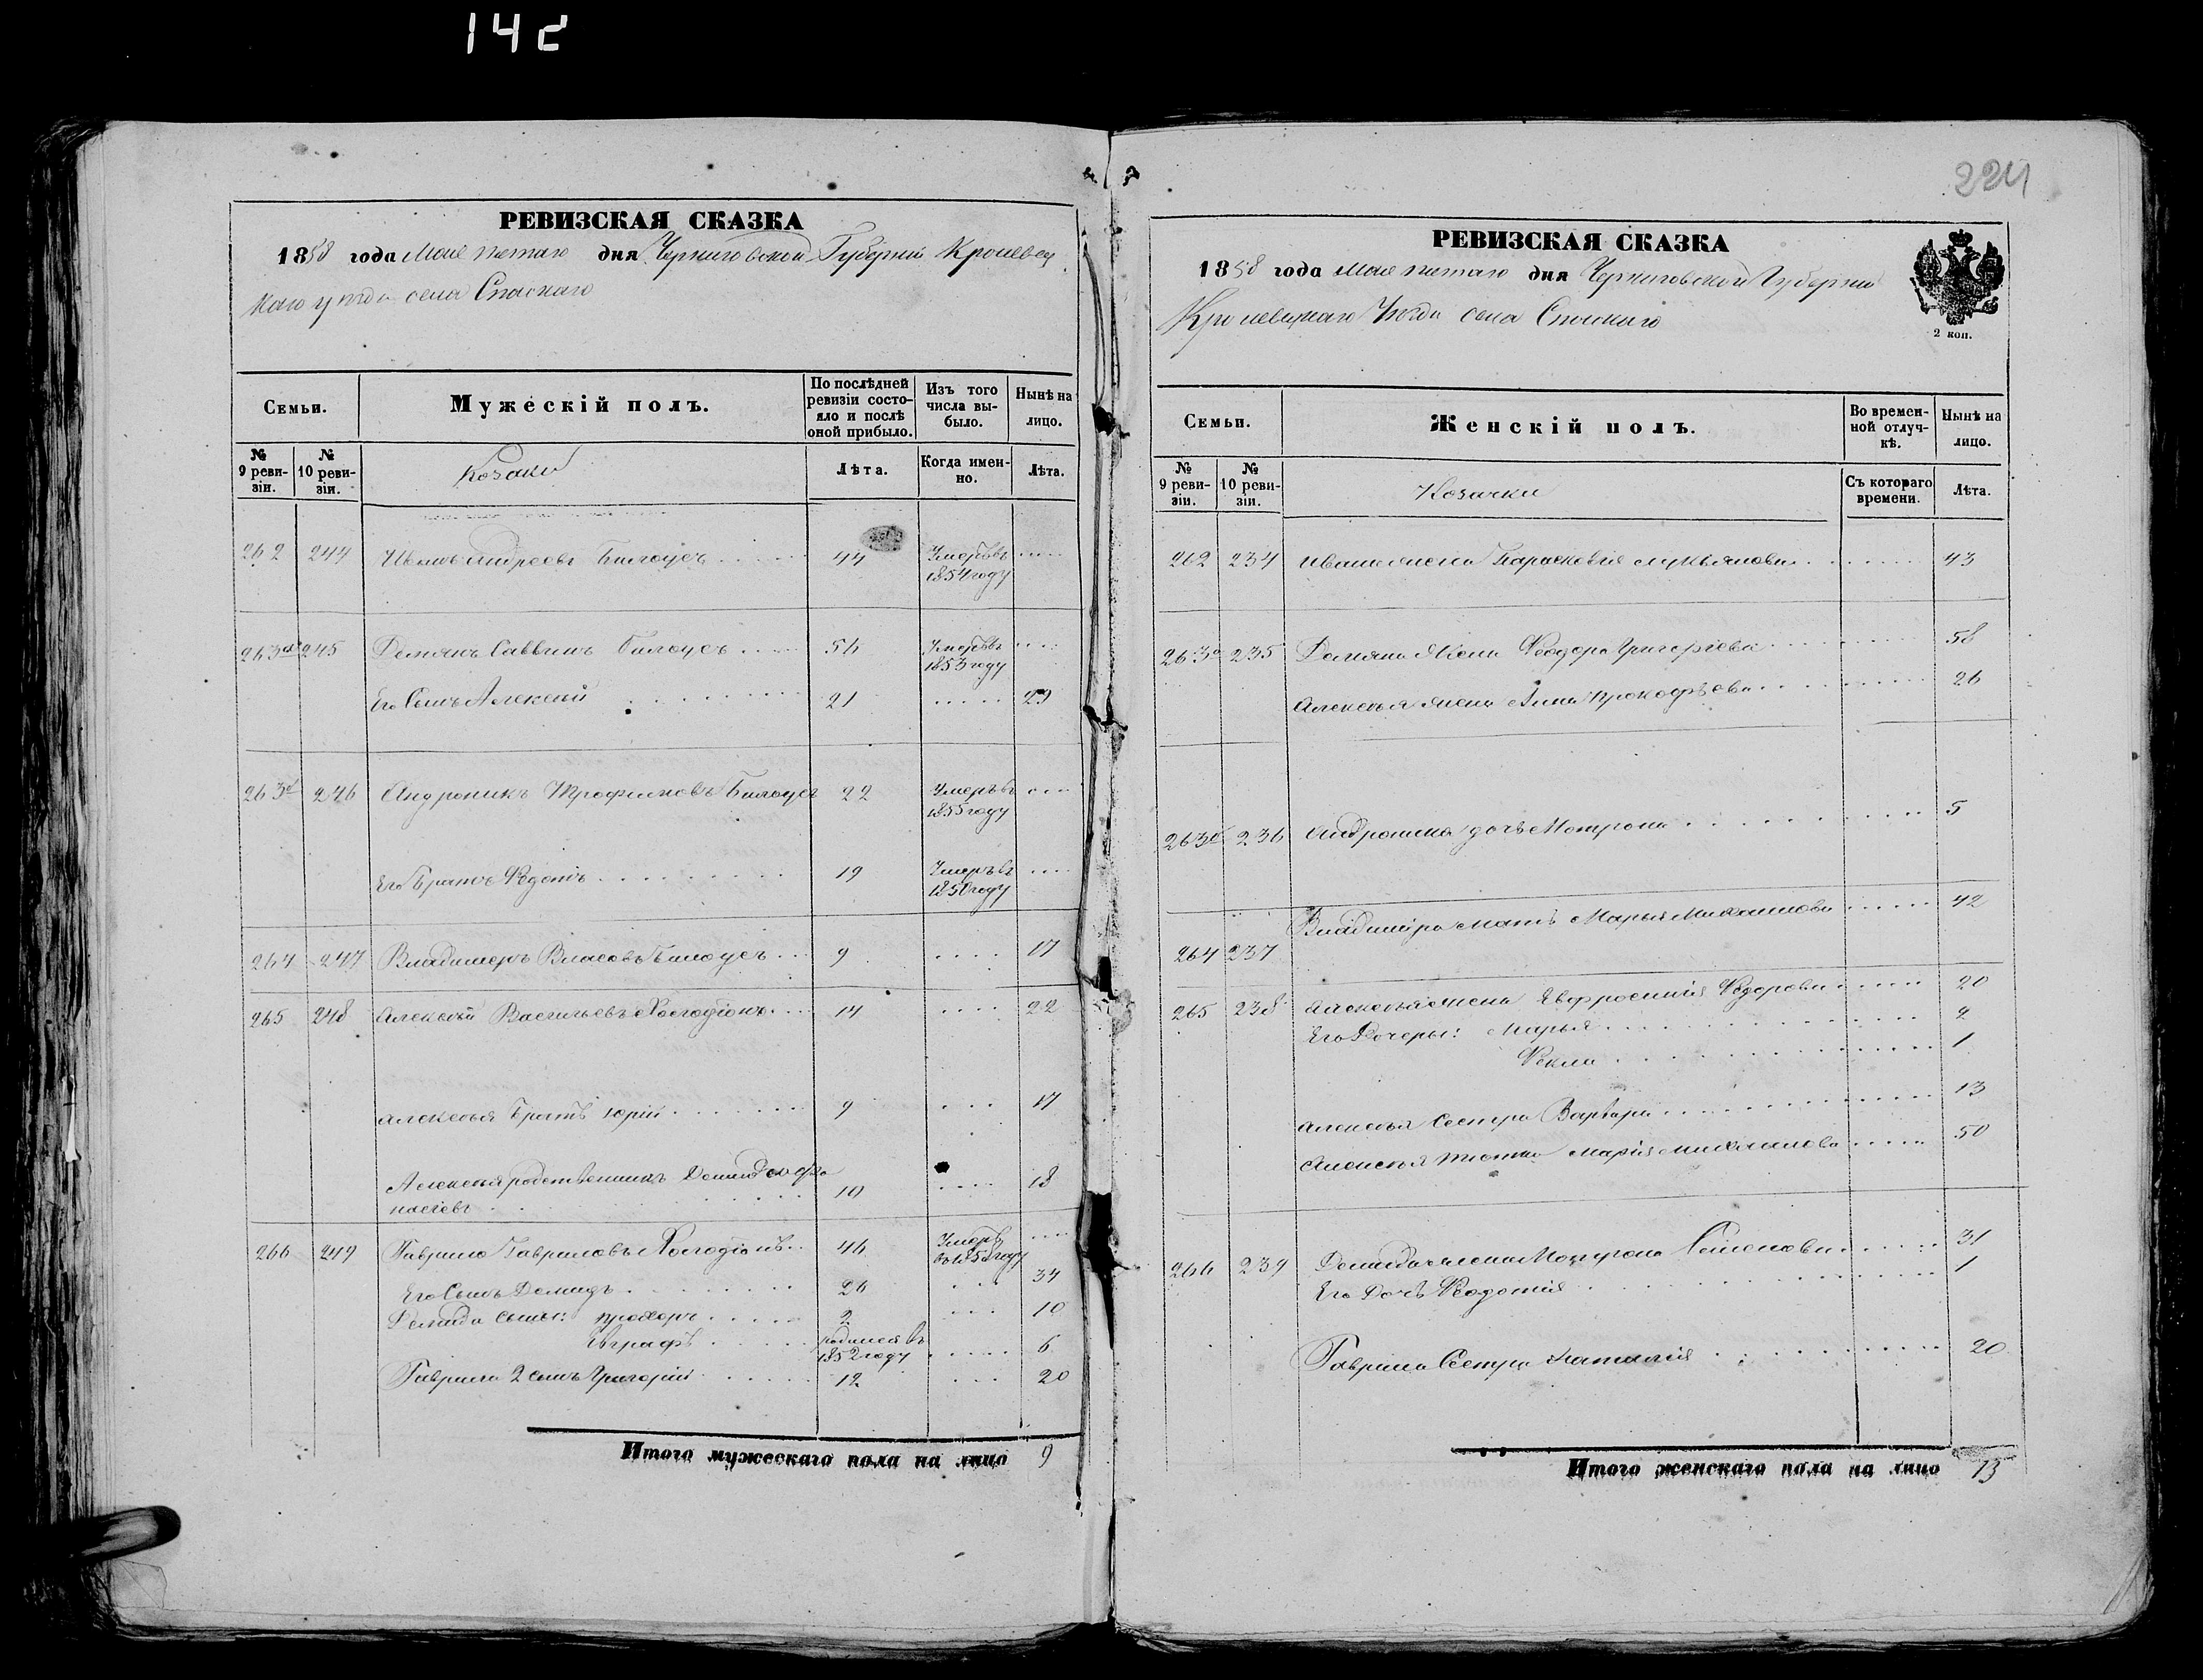 142
РЕВИЗСКАЯ СКАЗКА
1858 года Мая пятаго дня Черниговской Губерніи Кролевец
каго уезда села Спаскаго
Семьи.
Мужескій полъ.
По послѣдней ревизіи состо-
яло и послѣ
оной прибыло.
Изъ того
числа вы-
было.
Нынѣ на
лицо.
№
9 реви-
зіи.
№
10 реви-
зіи.
Козаки
Лѣта.
Когда имен-
но.
Лѣта.
262 244 Иванъ Андреевъ Билоусъ 44 Умеръ въ
1854 году
263 245 Демянъ Саввинъ Билоусъ 56 Умеръ въ
1853 году
Его Сынъ Алексей 21 29
263 246 Андроникъ Трофимовъ Билоусъ 22 Умеръ въ
1855 году
Его Братъ Федотъ 19 Умеръ въ
1850 году
264 247 Владимеръ Власовъ Билоусъ 9 17
265 248 Алексей Васильевъ 14 22
Алексея Братъ Юрій 9 17
Алексея родственникъ Демидъ Афа
насіевъ 10 18
266 249 Гаврило Гавриловъ 46 Умеръ
году
Его Сынъ Демидъ 26 34
Демида сыны: Прохоръ 2 10
Евграфъ родился въ
1852 году 6
Гаврила 2 сынъ Григорій 12 20
Итого мужескаго пола на лицо 9
224
РЕВИЗСКАЯ СКАЗКА
1858 года Мая пятаго дня Черниговской Губерніи
Кролевецкаго Уезда села Спаскаго
2 коп.
Семьи.
Женскій полъ.
Во времен-
ной отлуч-
кѣ.
Нынѣ на
лицо.
№
9 реви-
зіи.
№
10 реви-
зіи.
Козачки
Съ котораго
времени.
Лѣта.
262 234 Ивана жена Парасковія Лукьянова 43
263 235 Демяна Жена Феодора Григорієва 58
Алексея жена Анна Прокофьева 26
263 236 Андроника дочь Мотрона 5
Владиміра мать Марья Михайлова 42
264 237
265 238 Алексея жена Евфросинія Федорова 20
Его Дочеры: Марья
Фекла 1
Алексея Сестра Варвара 13
Алексея тіотка Марія Михайлова 50
266 239 Демида жена Мотрона Семенова 31
Его Дочь Феодотія 1
Гаврила Сестра Наталія 20
Итого женскаго пола на лицо 13